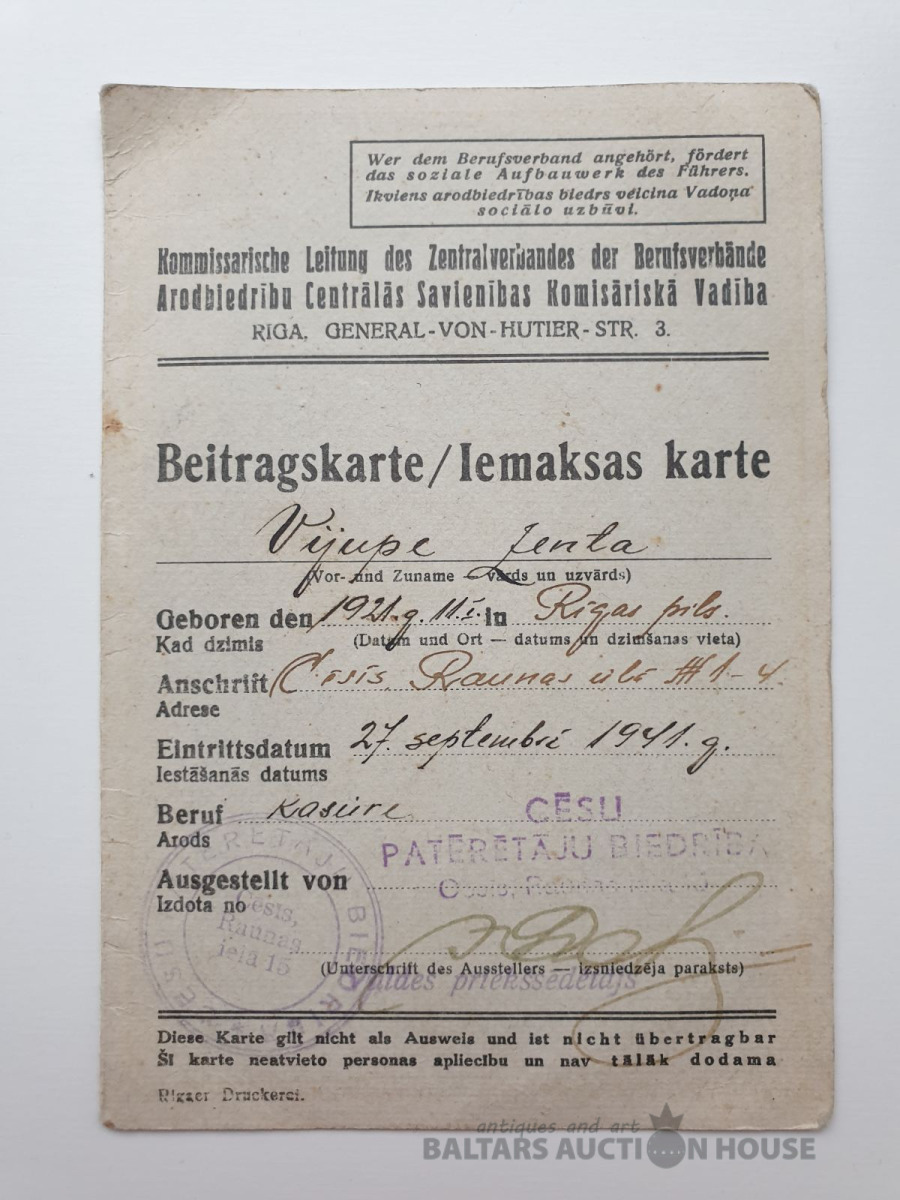 Wer dem Berufsverband angehört, fördert
das soziale Aufbauwerk des Führers.
Ikviens arodbiedrības biedrs veicina Vadoņa
sociālo uzbūvi.
Kommissarische Leitung des Zentralverbandes der Berufsverbände
Arodbiedrību Centrālās Savienības Komisāriskā Vadība
RIGA, GENERAL-VON-HUTIER-STR. 3.
Beitragskarte/Iemaksas karte
Vijupe Zenta
(Vor- und Zuname — vārds un uzvārds)
Geboren den 1921.g. 11.I. in Rīgas pils.
Kad dzimis (Datum und Ort — datums un dzimšanas vieta)
Anschrift Cēsīs, Raunas ielā № 1-4.
Adrese
Eintrittsdatum 27. septembrī 1941. g.
Iestāšanās datums
Beruf kasiere
Arods
CĒSU
PATĒRĒTĀJU BIEDRĪBA
Ausgestellt von Cēsīs, Raunas
Izdota no
Cēsīs,
Raunas
ielā 15
(Unterschrift des Ausstellers — izsniedzēja paraksts)
Valdes priekšsēdētājs
Diese Karte gilt nicht als Ausweis und ist nicht übertragbar
Šī karte neatvieto personas apliecību un nav tālāk dodama
Rigaer Druckerei.
antiques and art
BALTARS AUCTION HOUSE